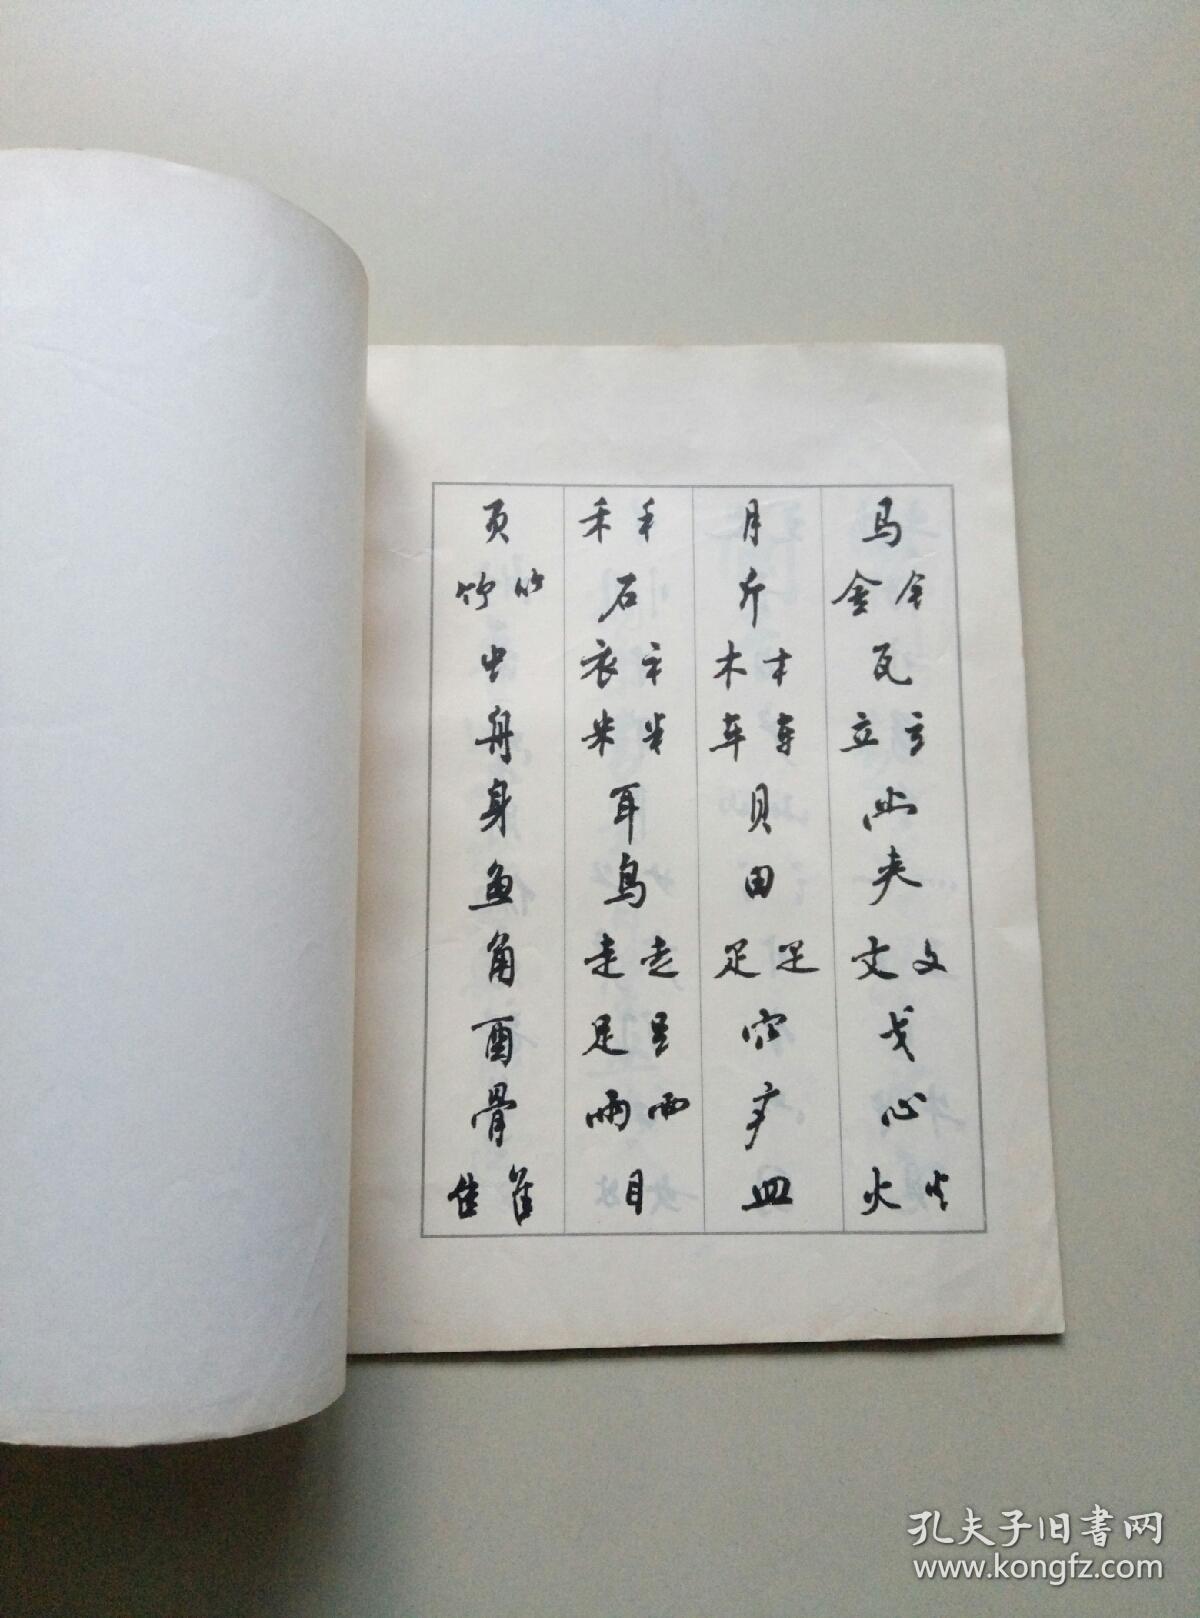 马
金 钅
瓦
立 立
夫
文 攵
戈
心
火 火
月
斤
木 木
车 车
贝
田
足 足
穴
疒
皿
禾 禾
石
衣 衤
米 米
耳
鸟
走 走
足 𧾷
雨 雨
目
页
竹 竹
虫
舟
身
鱼
角
酉
骨
隹 隹
孔夫子旧书网
www.kongfz.com